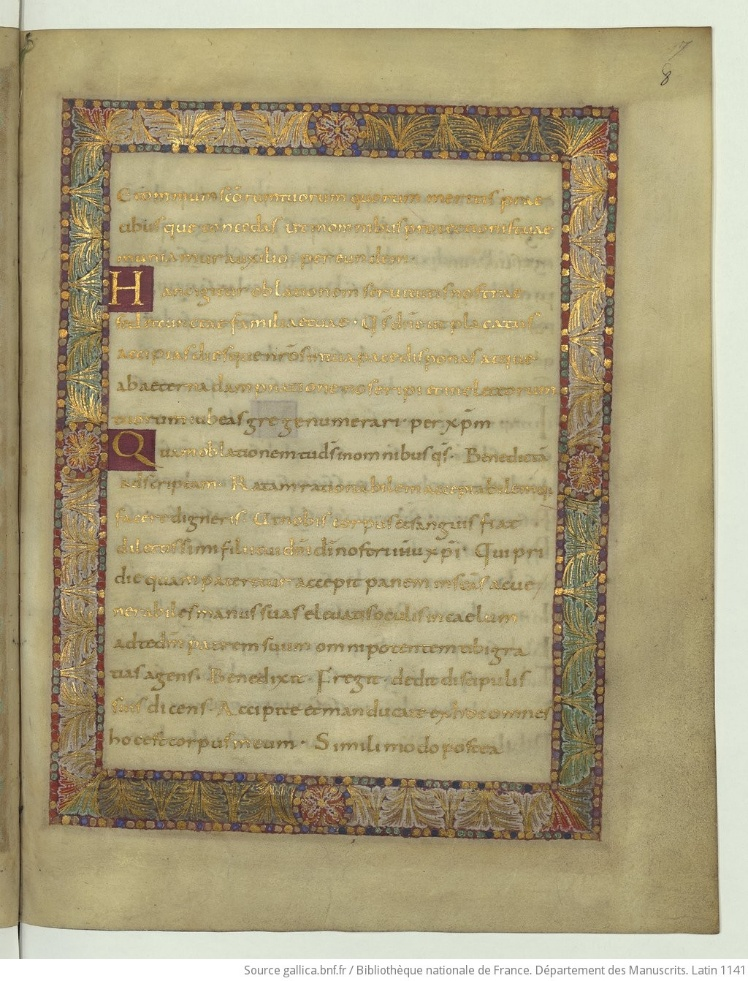 8
omnium scōrum tuorum quorum meritis præ
cibusque concedas ut in omnibus protectionis tuae
muniamur auxilio per eundem
Hanc igitur oblationem servitutis nostrae
sed et cunctae familiae tuae. Qs dn̄e ut placatus
accipias diesque nr̄os in tua pace disponas atque
ab aeterna damnatione nos eripi et in electorum
tuorum iubeas grege numerari per xp̄m
Quam oblationem tu ds̄ in omnibus qs̄. Benedictā
adscriptam Ratam rationabilem acceptabilemq;
facere digneris Ut nobis corpus et sanguis fiat
dilectissimi filii tui dn̄i dī nostri iħu xp̄i. Qui pri
die quam pateretur accepit panem in sc̄as ac ve
nerabiles manus suas elevatis oculis in caelum
ad te dm̄ patrem suum omnipotentem tibi gra
tias agens. Benedixit. Fregit. dedit discipulis
suis dicens. Accipite et manducate ex hoc omnes
hoc est corpus meum. Simili modo postea
Source gallica.bnf.fr / Bibliothèque nationale de France. Département des Manuscrits. Latin 1141